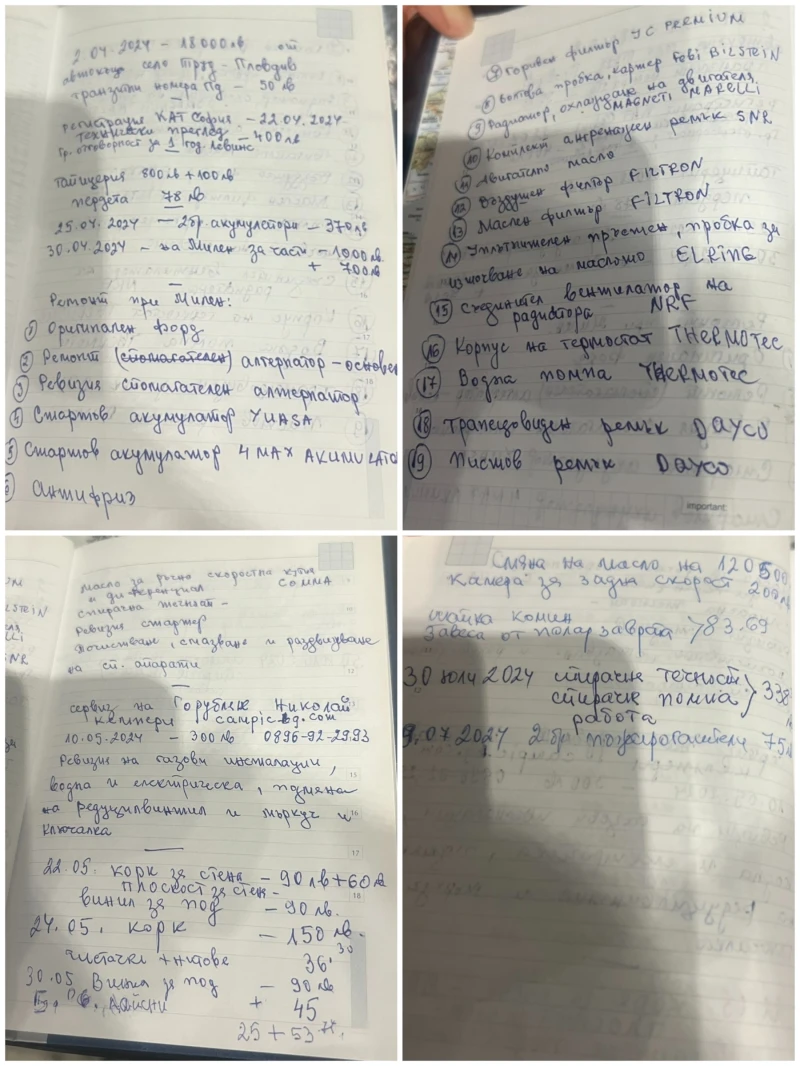 2.04.2024 – 18000лв от
автокъща село Труд – Пловдив
транзитни номера Пд – 50 лв
Регистрация КАТ София – 22.04.2024
технически преглед – 400лв
Гр. отговорност за 1 год. Левинс
Тапицерия 800лв + 100лв
пердета 78 лв
25.04.2024 – 2бр. акумулатори – 370лв
30.04.2024 – на Милен за части – 1000лв.
+ 700лв
Ремонт при Милен:
① Оригинален форд
② Ремонт (спомагателен) алтернатор – основен
③ Ревизия спомагателен алтернатор
④ Стартов акумулатор YUASA
⑤ Стартов акумулатор 4MAX AKUMULATO
⑥ Антифриз
⑦ Горивен филтър JC PREMIUM
⑧ Болтова пробка, картер Febi BILSTEIN
⑨ Радиатор, охлаждане на двигателя
MAGNETI MARELLI
⑩ Комплект ангренажен ремък SNR
⑪ Двигателно масло
⑫ Въздушен филтър FILTRON
⑬ Маслен филтър FILTRON
⑭ Уплътнителен пръстен, пробка за
източване на маслото ELRING
⑮ Съединител вентилатор на
радиатора NRF
⑯ Корпус на термостат THERMOTEC
⑰ Водна помпа THERMOTEC
⑱ Трапецовиден ремък DAYCO
⑲ Пистов ремък DAYCO
important:
Масло за ръчно скоростна кутия
и диференциал COMMA
Спирачна течност –
Ревизия стартер
Почистване, смазване и раздвижване
на сп. апарати
сервиз на Горубляне Николай
кемпери campicbg.com
10.05.2024 – 300лв 0896-92-29.93
Ревизия на газови инсталации,
водна и електрическа, подмяна
на редуцилвинтил и маркуч и
ключалка
22.05. корк за стена – 90лв + 60лв
плоскост за стен-
винил за под – 90лв.
24.05. корк – 150лв.
чистачки + нитове 36.30
30.05 Винил за под – 90лв
+ 45
25 + 53
Смяна на масло на 120500
Камера за задна скорост 200лв
шайка комин
Завеса от полар завръта > 83.69
30 юли 2024 спирачна течност
спирачна помпа } 338
работа
9.07.2024 2 бр пожарогасители 75лв